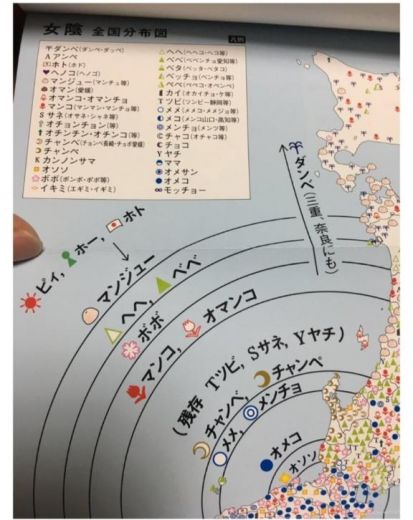 女陰 全国分布図
凡例
干ダンベ(ダンベ・ダッペ)
Aアンペ
ホト(ホド)
ヘノコ(ヘノコ)
マンジュー(マンチュ等)
オマン(愛媛)
オマンコ・オマンチョ
マンコ(マンコ・マンチョ等)
Sサネ(オサネ・シャネ等)
オチョンチョン(等)
オチンチン・オチンコ(等)
チャンベ(チョンベ長崎・チョボ愛媛)
チャンペ
Kカンノンサマ
オソソ
ボボ(ボンボ・ボボ等)
イキミ(エギミ・イギミ)
ヘヘ(ヘヘコ・ペコ等)
ベベ(ベベンチョ愛知等)
ベタ(ベッタ・ベタコ)
ベッチョ(ベンチョ等)
ペペ(ペペコ・オペンペ)
カイ(オカイチョ・ケ等)
Tツビ(ツンビー静岡等)
メメ(メメコ・メメジョ等)
メコ(メンコ山口・高知等)
メンチョ(メンツ等)
チャコ(オチャコ等)
チョコ
Yヤチ
ママ
オメサン
オメコ
モッチョー
干ダンベ(三重、奈良にも)
ピィ, ホー, ホト
マンジュー
ヘヘ, ベベ
ボボ
マンコ, オマンコ
(残存 Tツビ, Sサネ, Yヤチ)
チャンベ, チャンペ
メメ, メンチョ
オメコ
オソソ